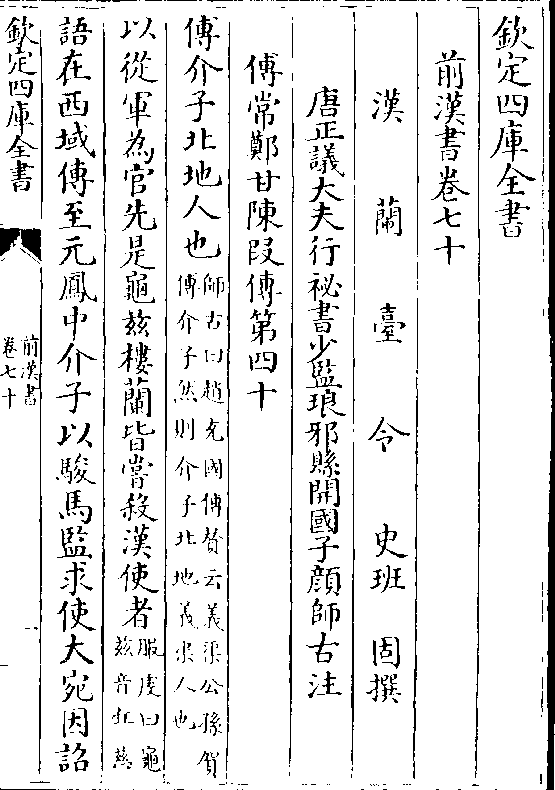 欽定四庫全書
前漢書卷七十
漢蘭臺令史班固撰
唐正議大夫行祕書少監琅邪縣開國子顔師古注
傅常鄭甘陳段傳第四十
傅介子北地人也師古曰趙充國傳贊云義渠公孫賀
傅介子然則介子北地義渠人也
以從軍為官先是龜兹樓蘭皆嘗殺漢使者服虔曰龜
兹音丘慈
語在西域傳至元鳳中介子以駿馬監求使大宛因詔
欽定四庫全書
前漢書
卷七十
一